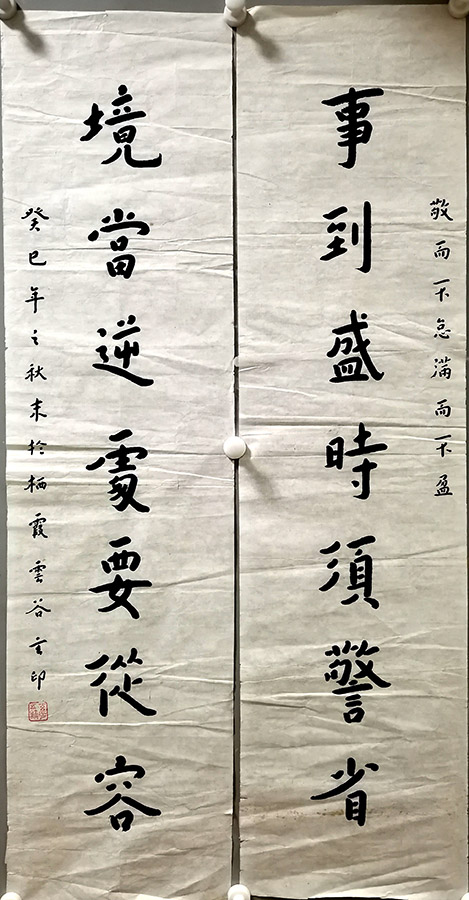 敬而不怠滿而不盈
事到盛時須警省
境當逆處要從容
癸巳年之秋末於栖霞雲谷主印